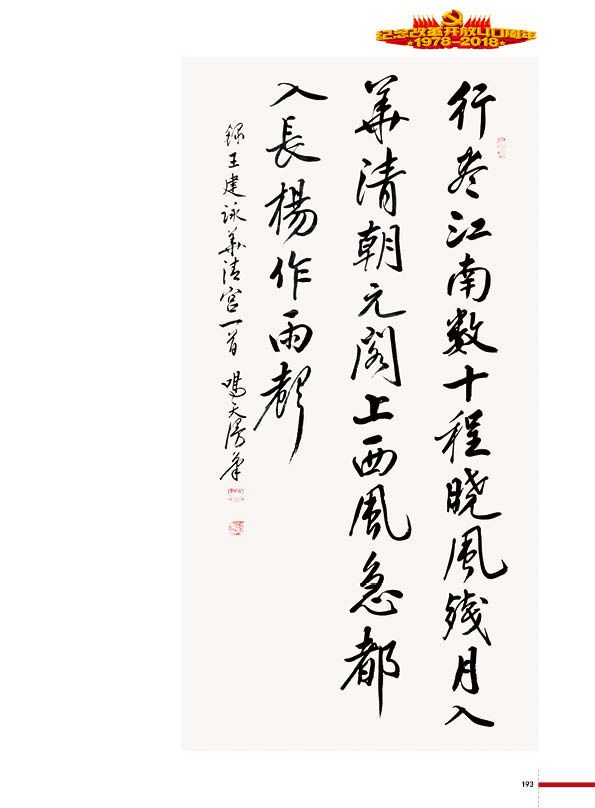 纪念改革开放40周年
★1978-2018★
行尽江南数十程晓风残月入
华清朝元阁上西风急都
入長楊作雨声
録王建詠华清宫一首 天湯筆
193